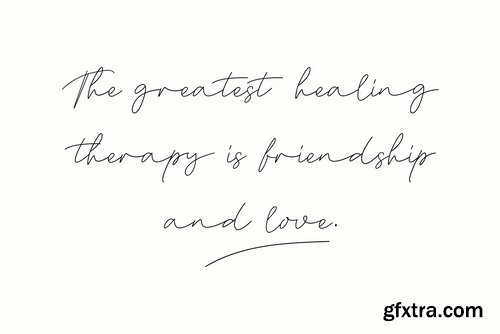 The greatest healing
therapy is friendship
and love.
gfxtra.com